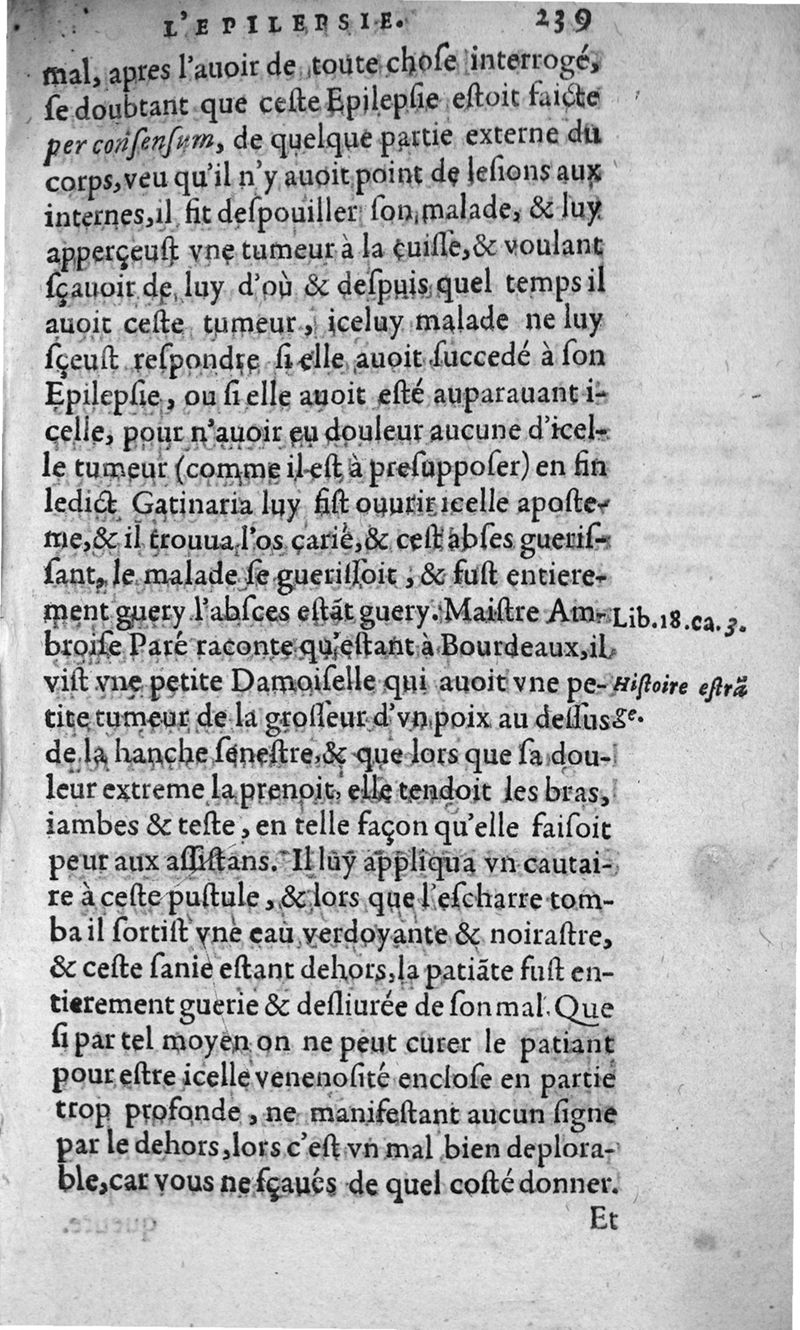 L'EPILEPSIE. 239
mal, apres l'auoir de toute choſe interrogé,
ſe doubtant que ceſte Epilepſie eſtoit faicte
per conſenſum, de quelque partie externe du
corps, veu qu'il n'y auoit point de leſions aux
internes, il fit deſpouiller ſon malade, & luy
apperçeuſt vne tumeur à la cuiſſe, & voulant
ſçauoir de luy d'où & deſpuis quel temps il
auoit ceſte tumeur, iceluy malade ne luy
ſçeuſt reſpondre ſi elle auoit ſuccedé à ſon
Epilepſie, ou ſi elle auoit eſté auparauant i-
celle, pour n'auoir eu douleur aucune d'icel-
le tumeur (comme il eſt à preſuppoſer) en fin
ledict Gatinaria luy fiſt ouurir icelle apoſte-
me, & il trouua l'os carié, & ceſt abſes gueriſ-
ſant, le malade ſe gueriſſoit, & fuſt entiere-
ment guery l'abſces eſtãt guery. Maiſtre Am- Lib. 18. ca. 3.
broiſe Paré raconte qu'eſtant à Bourdeaux, il
viſt vne petite Damoiſelle qui auoit vne pe- Hiſtoire eſtrã
tite tumeur de la groſſeur d'vn poix au deſſus ge.
de la hanche ſeneſtre, & que lors que ſa dou-
leur extreme la prenoit, elle tendoit les bras,
iambes & teſte, en telle façon qu'elle faiſoit
peur aux aſſiſtans. Il luy appliqua vn cautai-
re à ceſte puſtule, & lors que l'eſcharre tom-
ba il ſortiſt vne eau verdoyante & noiraſtre,
& ceſte ſanie eſtant dehors, la patiãte fuſt en-
tierement guerie & deſliurée de ſon mal. Que
ſi par tel moyen on ne peut curer le patiant
pour eſtre icelle venenoſité encloſe en partie
trop profonde, ne manifeſtant aucun ſigne
par le dehors, lors c'eſt vn mal bien deplora-
ble, car vous ne ſçaués de quel coſté donner.
Et